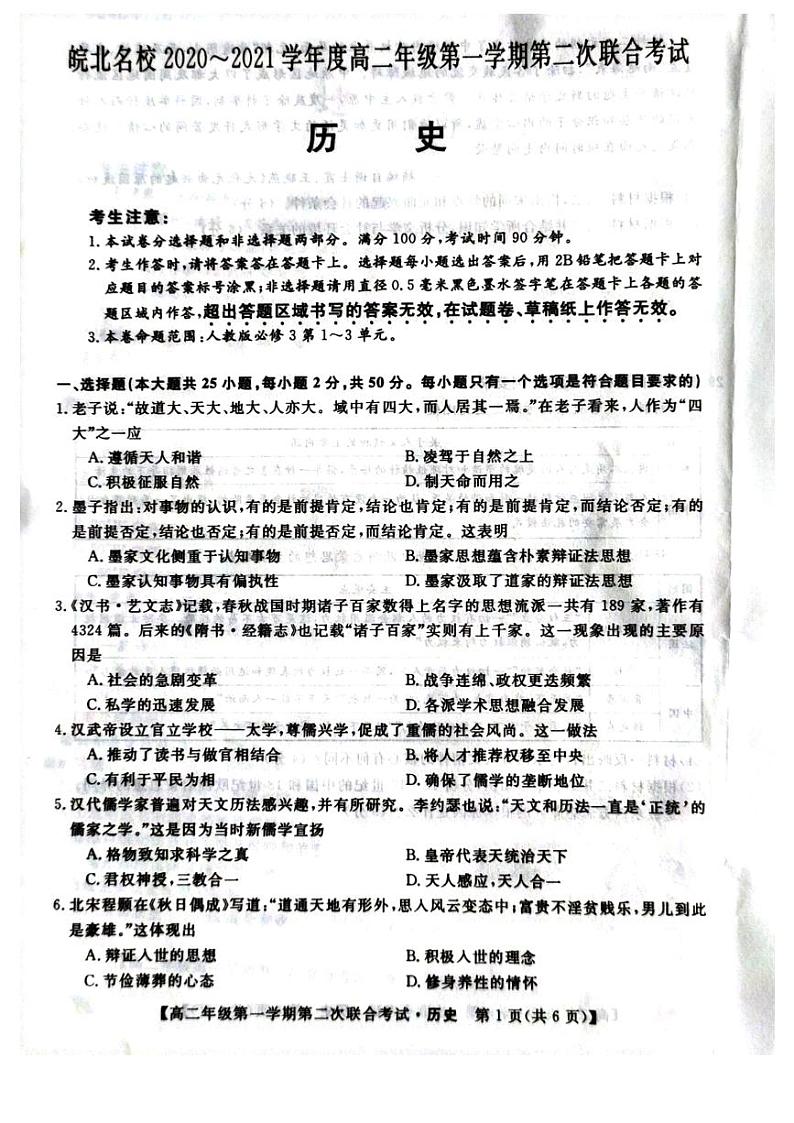 皖北名校 2020～2021 学年度高二年级第一学期第二次联合考试
历 史
考生注意:
1. 本试卷分选择题和非选择题两部分。满分 100 分,考试时间 90 分钟。
2. 考生作答时,请将答案答在答题卡上。选择题每小题选出答案后,用 2B 铅笔把答题卡上对
应题目的答案标号涂黑;非选择题请用直径 0.5 毫米黑色墨水签字笔在答题卡上各题的答
题区域内作答,超出答题区域书写的答案无效,在试题卷、草稿纸上作答无效。
3. 本卷命题范围:人教版必修 3 第 1～3 单元。
一、选择题(本大题共 25 小题,每小题 2 分,共 50 分。每小题只有一个选项是符合题目要求的)
1. 老子说:“故道大、天大、地大、人亦大。域中有四大,而人居其一焉。”在老子看来,人作为“四
大”之一应
A. 遵循天人和谐 B. 凌驾于自然之上
C. 积极征服自然 D. 制天命而用之
2. 墨子指出:对事物的认识,有的是前提肯定,结论也肯定;有的是前提肯定,而结论否定;有的
是前提否定,结论也否定;有的是前提否定,而结论肯定。这表明
A. 墨家文化侧重于认知事物 B. 墨家思想蕴含朴素辩证法思想
C. 墨家认知事物具有偏执性 D. 墨家汲取了道家的辩证法思想
3.《汉书·艺文志》记载,春秋战国时期诸子百家数得上名字的思想流派一共有 189 家,著作有
4324 篇。后来的《隋书·经籍志》也记载“诸子百家”实则有上千家。这一现象出现的主要原
因是
A. 社会的急剧变革 B. 战争连绵、政权更迭频繁
C. 私学的迅速发展 D. 各派学术思想融合发展
4. 汉武帝设立官立学校——太学,尊儒兴学,促成了重儒的社会风尚。这一做法
A. 推动了读书与做官相结合 B. 将人才推荐权移至中央
C. 有利于平民为相 D. 确保了儒学的垄断地位
5. 汉代儒学家普遍对天文历法感兴趣,并有所研究。李约瑟也说:“天文和历法一直是‘正统’的
儒家之学。”这是因为当时新儒学宣扬
A. 格物致知求科学之真 B. 皇帝代表天统治天下
C. 君权神授,三教合一 D. 天人感应,天人合一
6. 北宋程颢在《秋日偶成》写道:“道通天地有形外,思入风云变态中;富贵不淫贫贱乐,男儿到此
是豪雄。”这体现出
A. 辩证入世的思想 B. 积极入世的理念
C. 节俭薄葬的心态 D. 修身养性的情怀
【高二年级第一学期第二次联合考试·历史 第 1 页(共 6 页)】